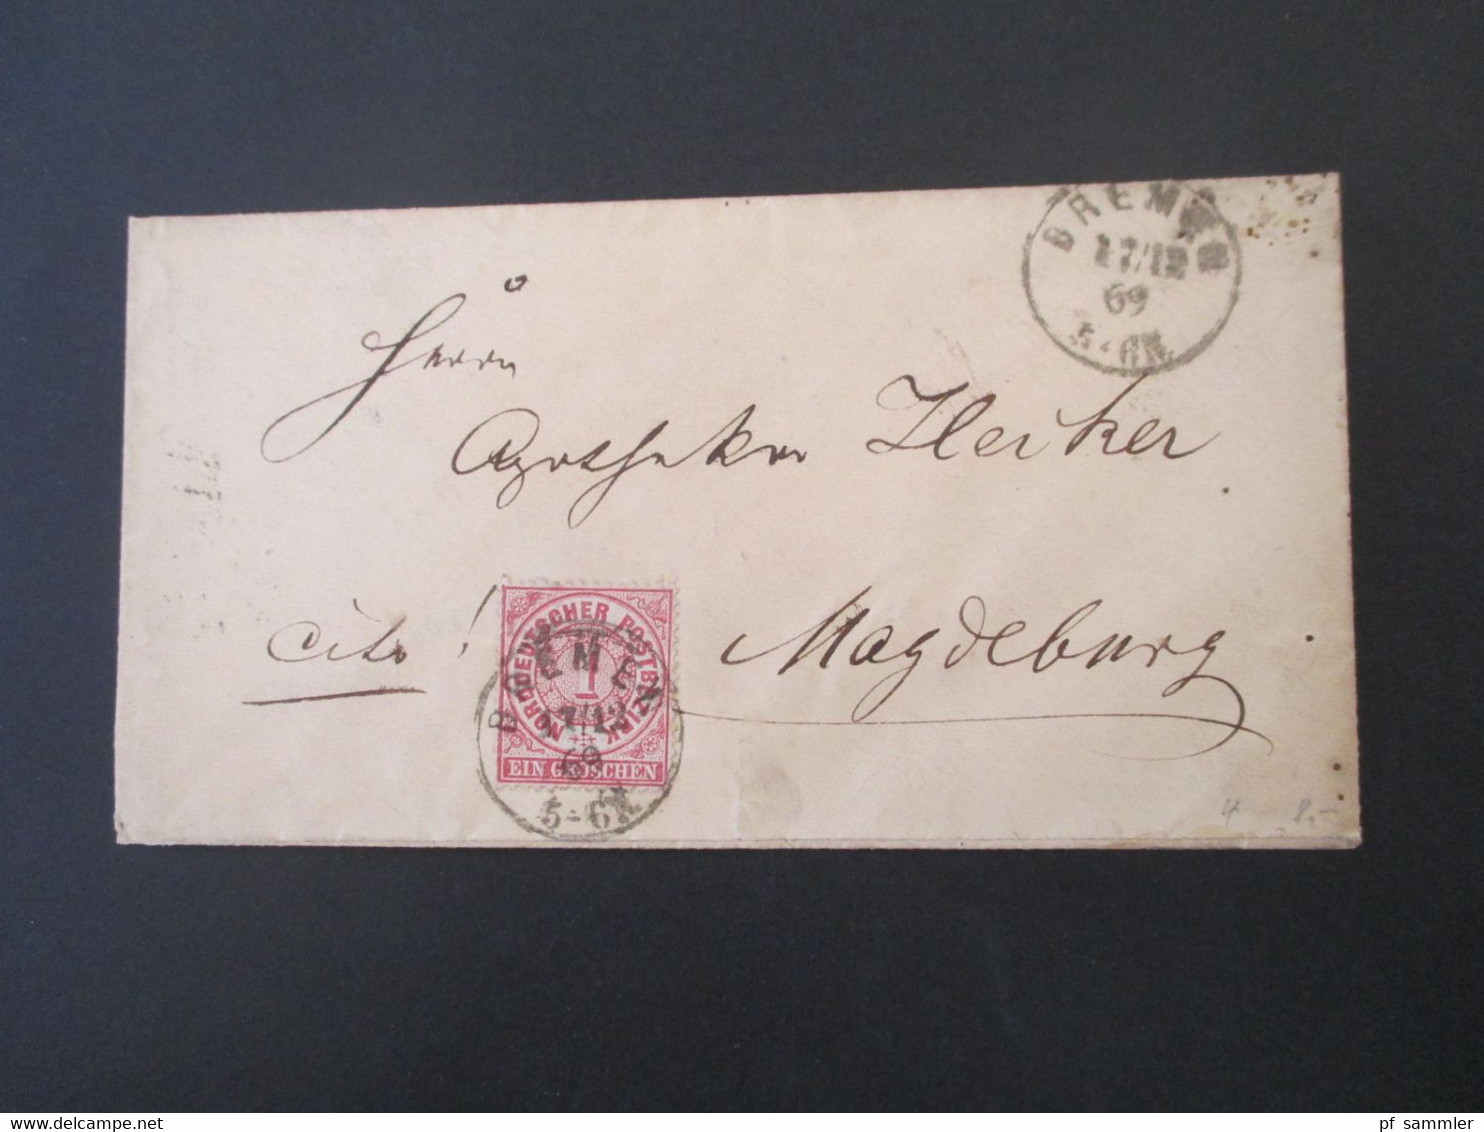 BREMEN
17/12
69
5-6N.
Herrn
Apotheker Hecker
cito!
Magdeburg
NORDDEUTSCHER POSTBEZIRK
1
EIN GROSCHEN
BREMEN
17/12
69
5-6N.
4 8,-
pf sammler
www.delcampe.net